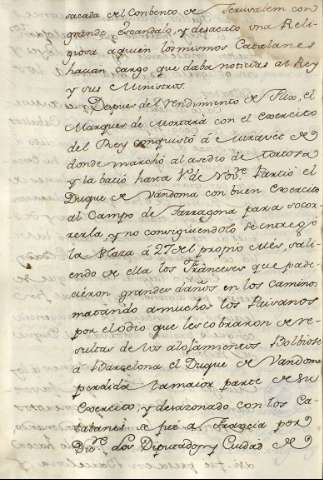 sacada del Conbento de Jerusalem con
grande Escandalo y desacato una Reli-
giosa a quien los mismos Catalanes
hacian cargo que daba noticias al Rey
y sus Ministros.
Despues del Rendimento de Flix, el
Marques de Mortara con el Exercito
del Rey conquistó á Miravet de
donde marchó al asedio de Tortosa
y la batió hasta 1º de Novᵉ. Partió el
Duque de Vandoma con buen Exercito
al Campo de Tarragona para socor-
rerla, y no consiguiendolo se entregó
la Plaza á 27 del propio Mes, sali-
endo de ella los Franceses que pade-
cieron grandes daños en los caminos
matando a muchos los Paisanos
por el odio que les cobraron de re-
sultas de los alojamientos Bolbiose
á Barcelona el Duque de Vandoma
perdida la maior parte de su
Exercito, y desazonado con los Ca-
talanes se fué al Francia por
Dizᵉ. los Diputados y Ciudad de